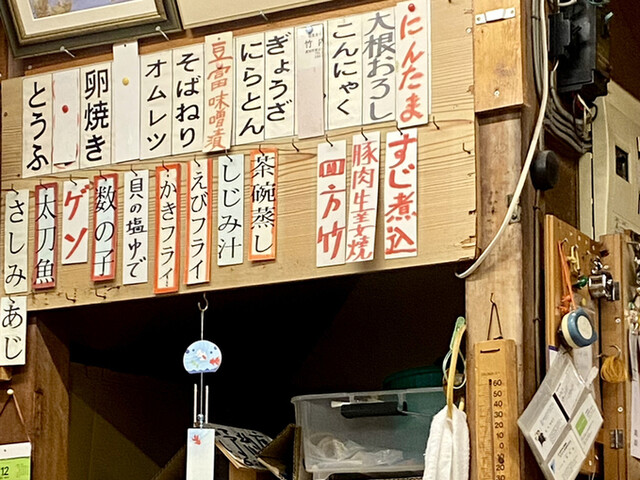 にんたま
大根おろし
こんにゃく
ぎょうざ
にらとん
豆富味噌漬
そばねり
オムレツ
卵焼き
とうふ
すじ煮込
豚肉生姜焼
四方竹
茶碗蒸し
しじみ汁
えびフライ
かきフライ
貝の塩ゆで
数の子
ゲソ
太刀魚
さしみ
あじ
12
60
50
40
30
20
10
0
10
20
30